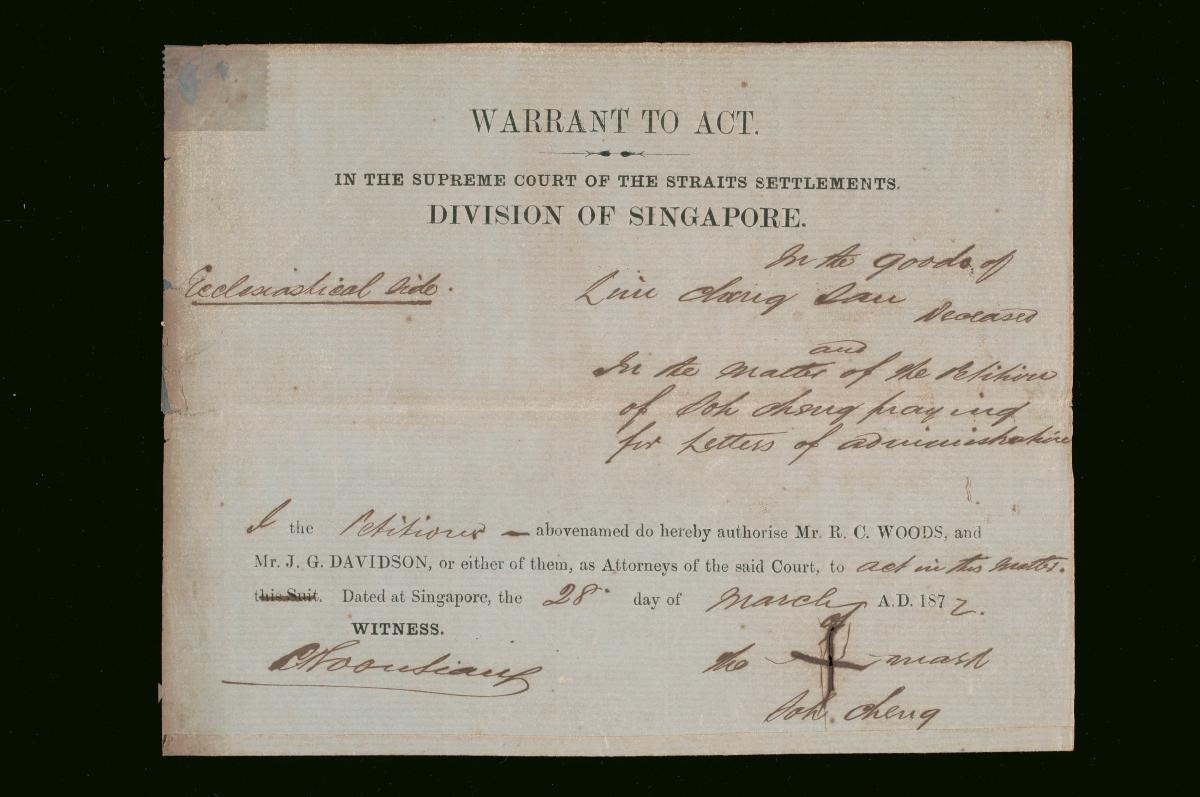 WARRANT TO ACT.
IN THE SUPREME COURT OF THE STRAITS SETTLEMENTS.
DIVISION OF SINGAPORE.
Ecclesiastical Side.
In the goods of
Lim Cheng San
Deceased
and
In the Matter of the Petition
of Soh Cheng praying
for Letters of administration
I the Petitioner — abovenamed do hereby authorise Mr. R. C. WOODS, and
Mr. J. G. DAVIDSON, or either of them, as Attorneys of the said Court, to act in this Matter.
this Suit. Dated at Singapore, the 28. day of March A.D. 1872.
WITNESS.
the mark
of
Soh Cheng